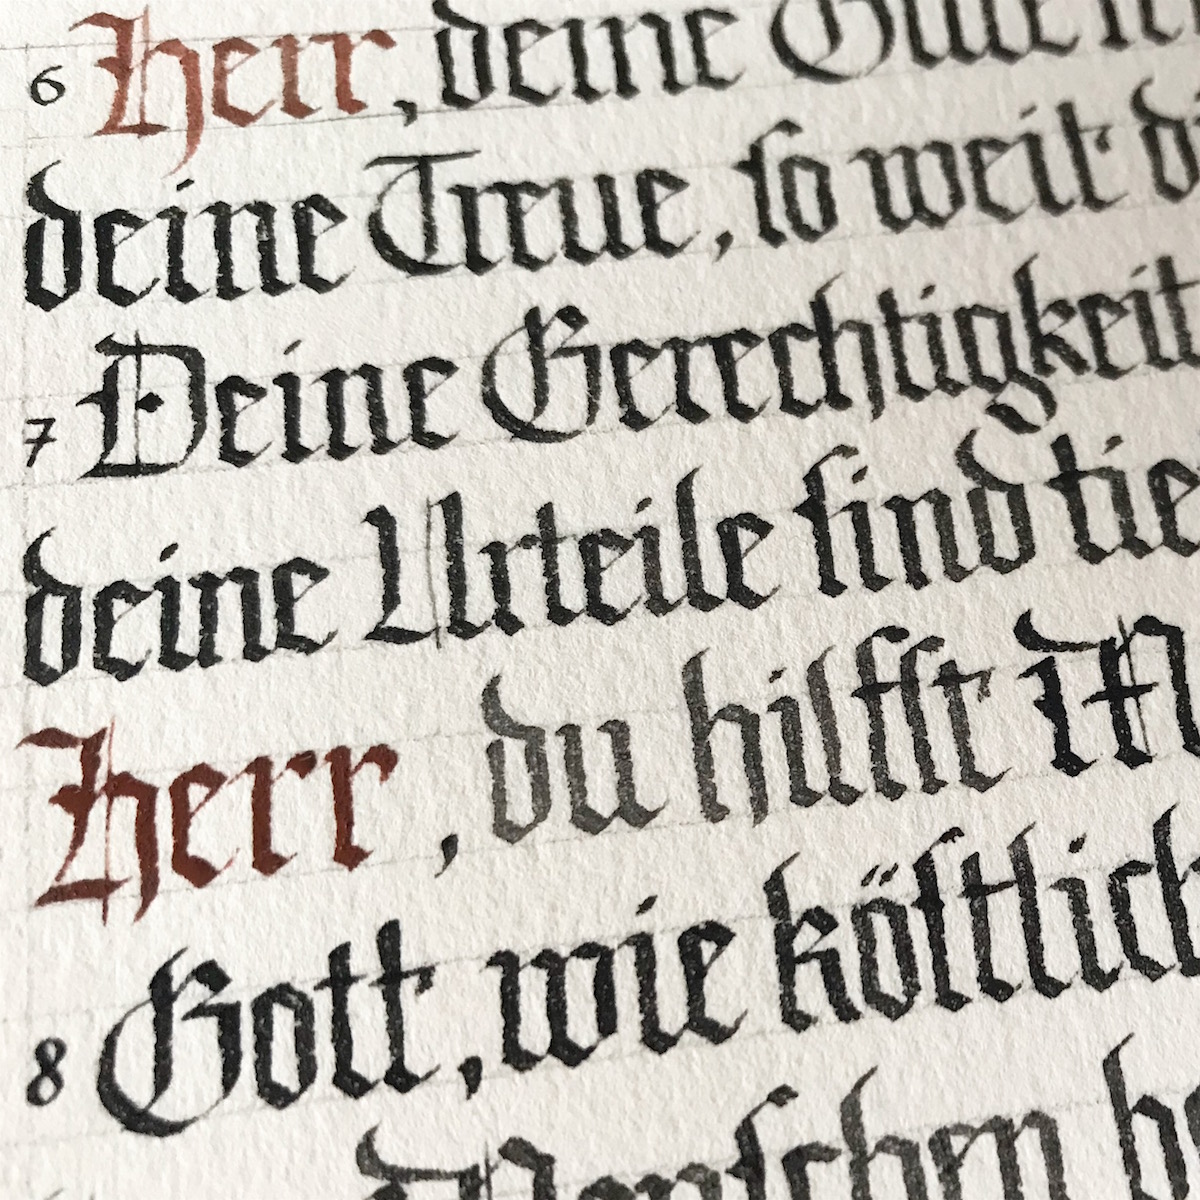 6 Herr, deine Güte
deine Treue, ſo weit
7 Deine Gerechtigkeit
deine Urteile ſind
Herr, du hilfſt
8 Gott, wie köſtlich
Menſchen